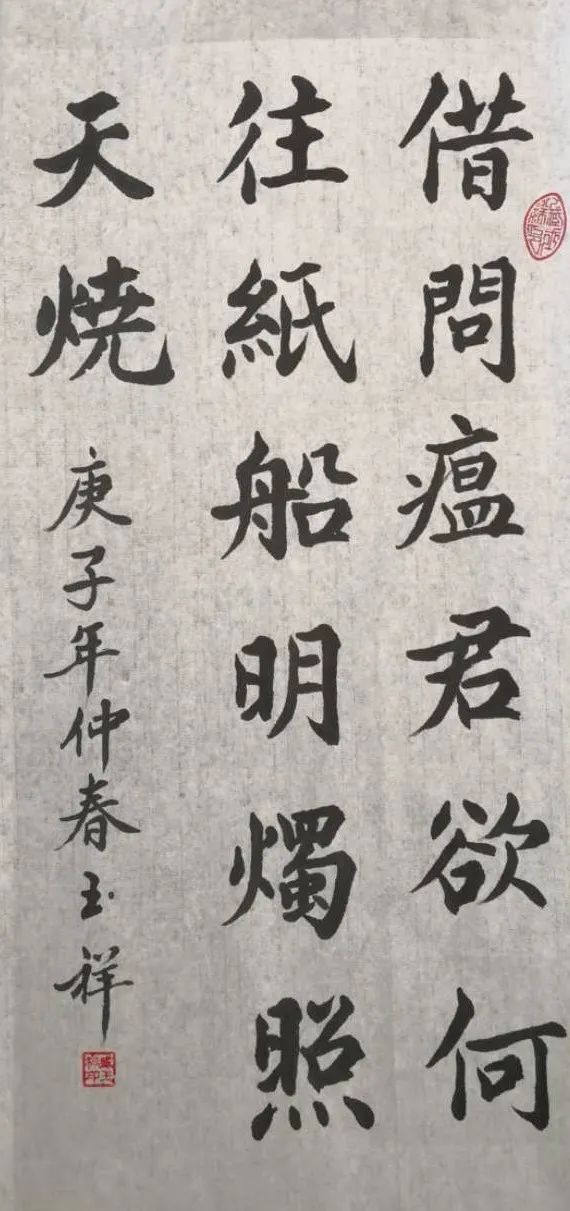 借問瘟君欲何
往紙船明燭照
天燒
庚子年仲春玉祥